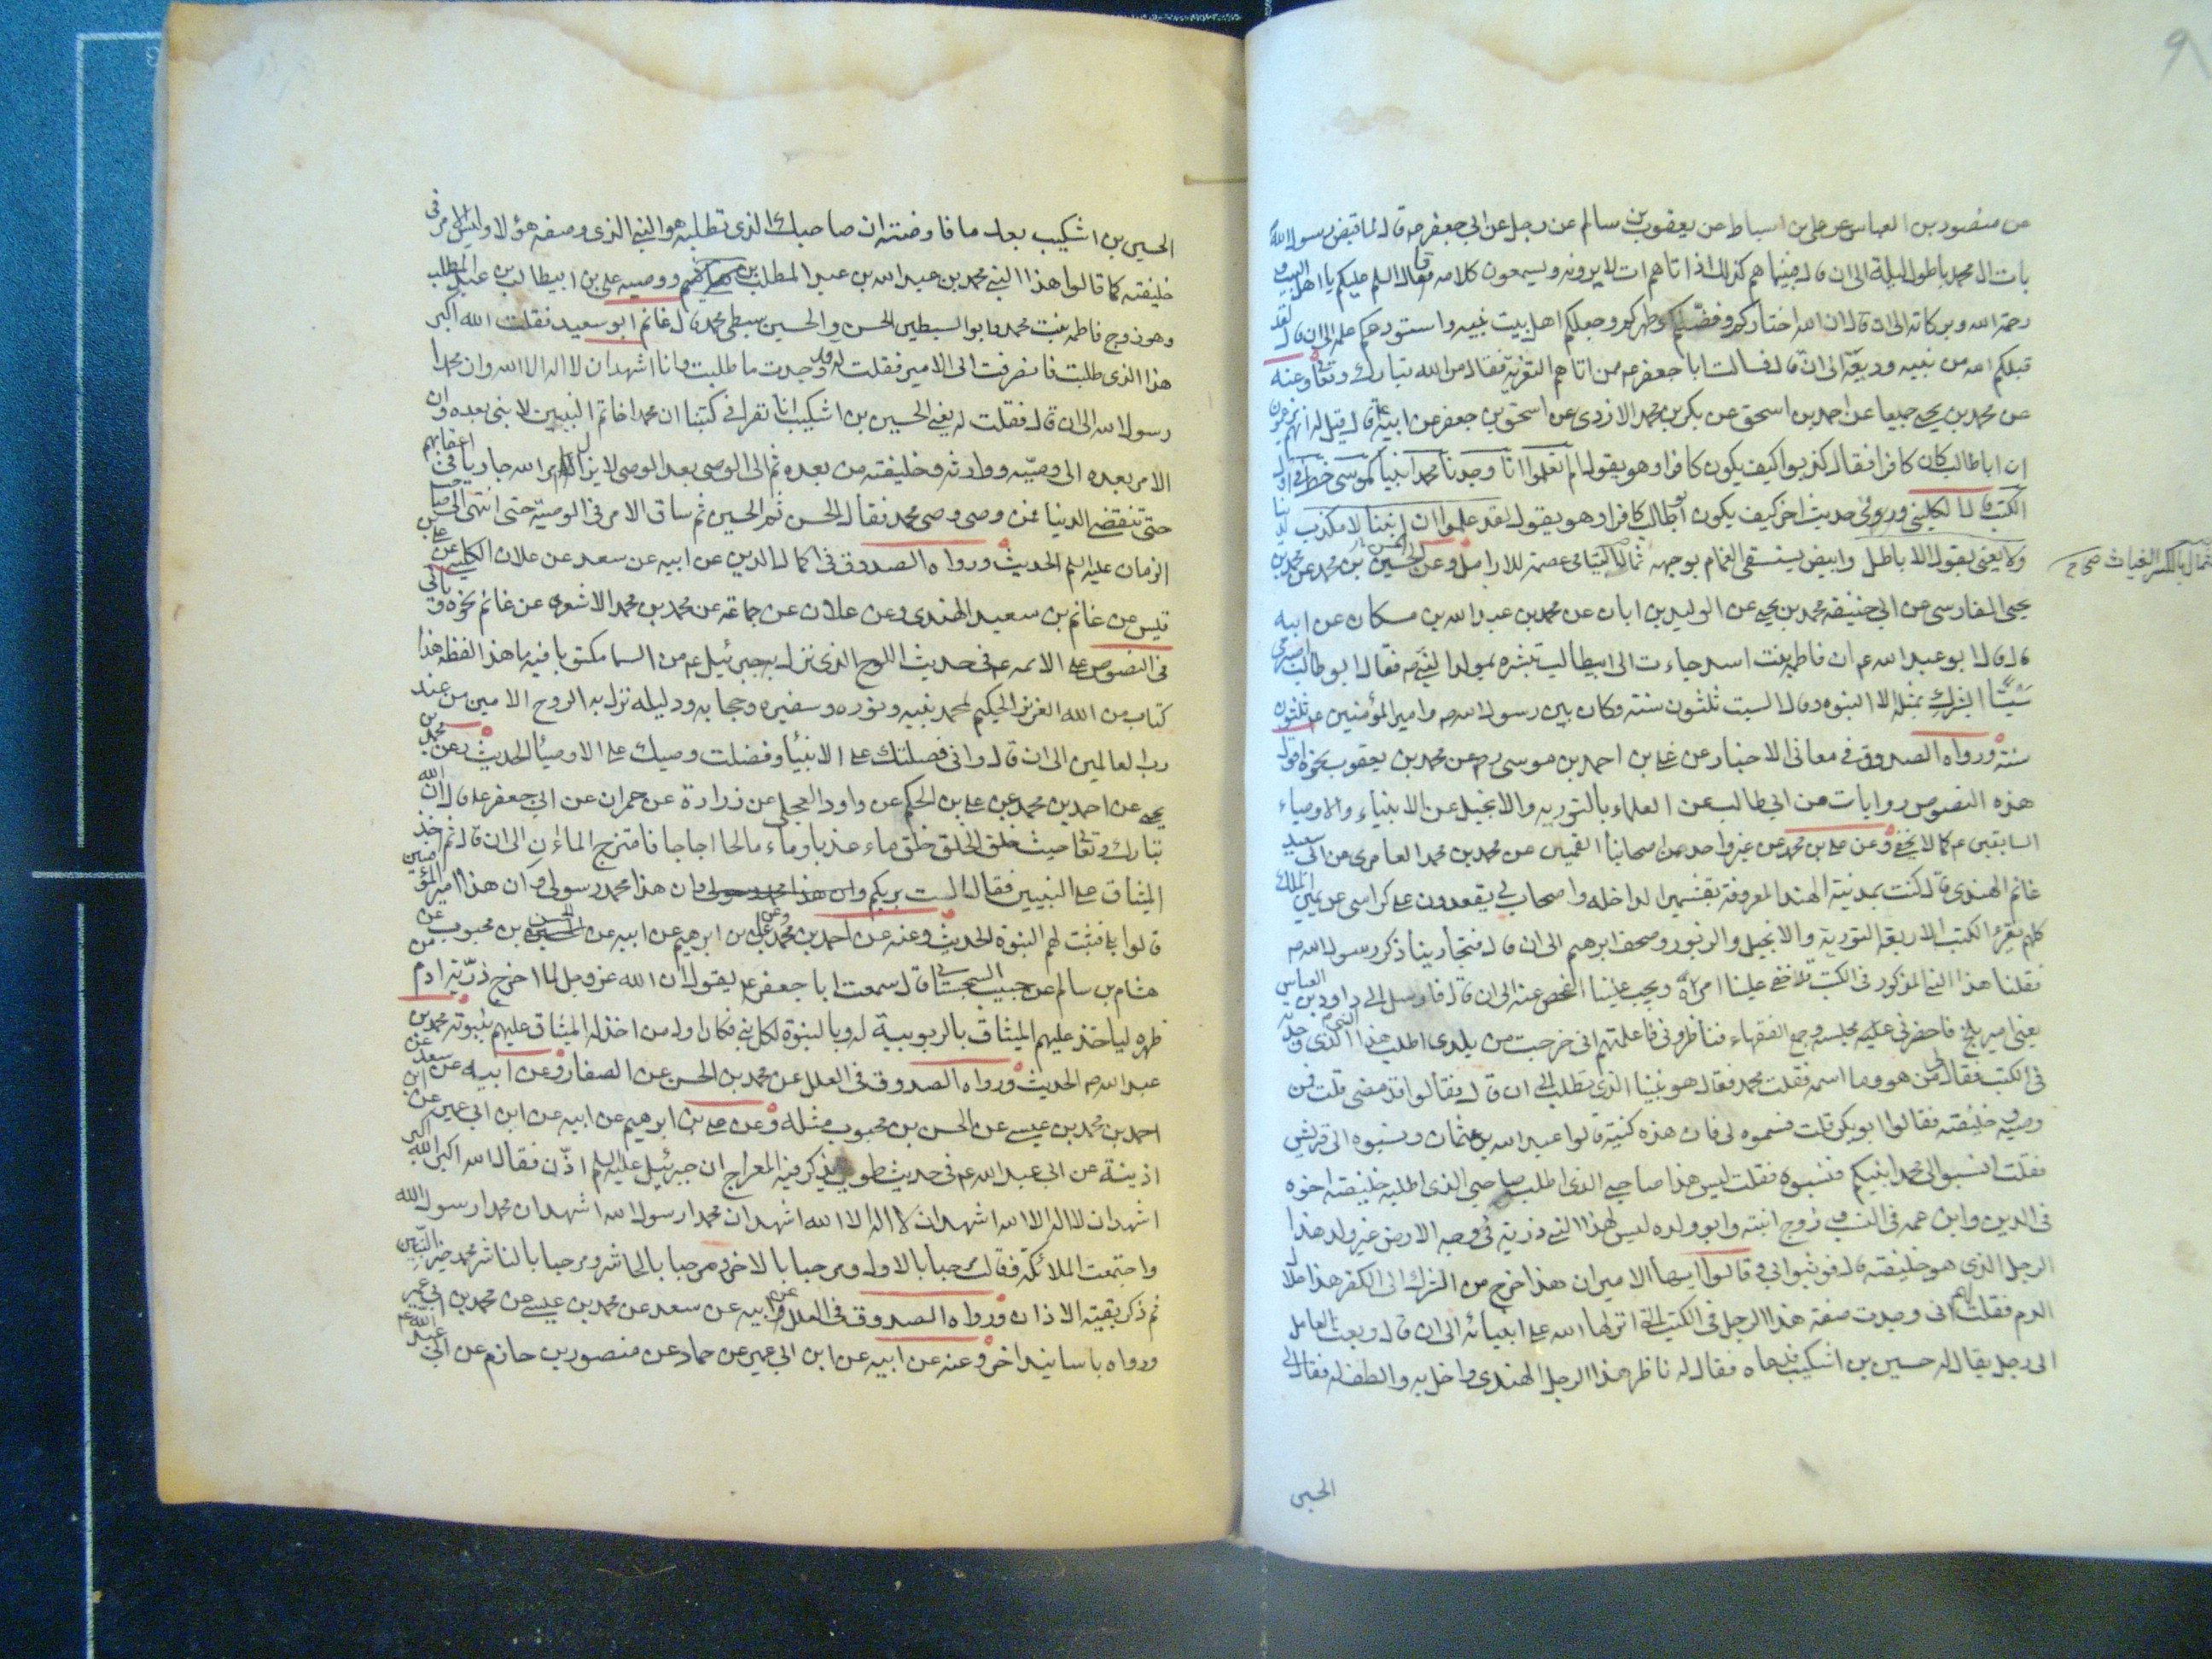 عن منصور بن العباس عن علي بن اسباط عن يعقوب بن سالم عن رجل عن ابي جعفر ع قال لما قبض رسول الله
بات ال محمد باطول ليلة الى ان قال فبيناهم كذلك اذ اتاهم ات لا يرونه ويسمعون كلامه فقال السلم عليكم يا اهل البيت و
رحمة الله وبركاته الى ان قال ان الله اختاركم وفضلكم وطهركم وجعلكم اهل بيت نبيه واستودعكم علمه الى ان قال لقد
قبلكم الله من نبيه وديعة الى ان قال فسالت ابا جعفر ع ممن اتاهم التعزية فقال من الله تبارك وتعالى وعنه
عن محمد بن يحيى جميعا عن احمد بن اسحق عن بكر بن محمد الازدي عن اسحق بن جعفر عن ابيه ع قال قيل له انهم يزعمون
ان ابا طالب كان كافرا فقال كذبوا كيف يكون كافرا وهو يقول الم تعلموا انا وجدنا محمدا نبيا كموسى خط في اول
الكتب قال الكليني وروي في حديث اخر كيف يكون ابو طالب كافرا وهو يقول لقد علموا ان ابننا لا مكذب لدينا
ولا يعنى بقول الاباطل وابيض يستسقى الغمام بوجهه ثمال اليتامى عصمة للارامل وعن الحسين بن محمد عن محمد بن
ثمال بالكسر الغياث صحاح
يحيى الفارسي عن ابي حنيفة محمد بن يحيى عن الوليد بن ابان عن محمد بن عبد الله بن مسكان عن ابيه
قال قال ابو عبد الله ع ان فاطمة بنت اسد جاءت الى ابيطالب تبشره بمولد النبي ص فقال ابو طالب اصبري
سبتا ابشرك بمثله الا النبوة وقال السبت ثلثون سنة وكان بين رسول الله ص وامير المؤمنين ع ثلثون
سنة ورواه الصدوق في معاني الاخبار عن علي بن احمد بن موسى رض عن محمد بن يعقوب نحوه اقول
هذه النصوص روايات من ابي طالب عن العلماء بالتورية والانجيل عن الانبياء والاوصياء
السابقين ع كما لا يخفى وعن علي بن محمد عن غير واحد من اصحابنا القميين عن محمد بن محمد العامري عن ابي سعيد
غانم الهندي قال كنت بمدينة الهند المعروفة بقشمير الداخلة واصحاب لي يقعدون على كراسي عن يمين الملك
كلهم يقرء الكتب الاربعة التورية والانجيل والزبور وصحف ابرهيم الى ان قال فتجارينا ذكر رسول الله ص
فقلنا هذا النبي المذكور في الكتب قد خفي علينا امره ويجب علينا الفحص عنه الى ان قال فارسل الى داود بن العباس
يعني امير بلخ فاحضرني مجلسه وجمع الفقهاء فناظروني فاعلمتهم اني خرجت من بلدي اطلب هذا النبي الذي وجدته
في الكتب فقال لي من هو وما اسمه فقلت محمد فقال هو نبينا الذي تطلب الى ان قال فقالوا قد مضى قلت فمن
وصيه وخليفته فقالوا ابو بكر قلت فسموه لي فان هذه كنيته قالوا عبد الله بن عثمان ونسبوه الى قريش
فقلت انسبوا لي محمدا نبيكم فنسبوه فقلت ليس هذا صاحبي الذي اطلب صاحبي الذي اطلبه خليفته اخوه
في الدين وابن عمه في النسب وزوج ابنته وابو ولده ليس لهذا النبي ذرية في وجه الارض غير ولد هذا
الرجل الذي هو خليفته قال فوثبوا بي وقالوا ايها الامير ان هذا خرج من الشرك الى الكفر هذا حلال
الدم فقلت لهم اني وجدت صفة هذا الرجل في الكتب التي انزلها الله على انبيائه الى ان قال وبعث العامل
الى رجل يقال له حسين بن اشكيب فدعاه فقال له ناظر هذا الرجل الهندي واخل به والطف له فقال لي
الحسين
الحسين بن اشكيب بعد ما فاوضته ان صاحبك الذي تطلبه هو النبي الذي وصفه هؤلاء وليس الامر في
خليفته كما قالوا هذا النبي محمد بن عبد الله بن عبد المطلب بن هاشم ووصيه علي بن ابيطالب بن عبد المطلب
وهو زوج فاطمة بنت محمد وابو السبطين الحسن والحسين سبطي محمد قال غانم ابو سعيد فقلت الله اكبر
هذا الذي طلبت فانصرفت الى الامير فقلت له قد وجدت ما طلبت وانا اشهد ان لا اله الا الله وان محمدا
رسول الله الى ان قال فقلت له يعني الحسين بن اشكيب انا نقرا في كتبنا ان محمدا خاتم النبيين لا نبي بعده وان
الامر بعده الى وصيه ووارثه وخليفته من بعده ثم الى الوصي بعد الوصي لا يزال امر الله جاريا في اعقابهم
حتى تنقضي الدنيا فمن وصي وصي محمد فقال الحسن ثم الحسين ثم ساق الامر في الوصية حتى انتهى الى صاحب
الزمان عليه السلم الحديث ورواه الصدوق في اكمال الدين عن ابيه عن سعد عن علان الكليني عن علي بن
قيس عن غانم بن سعيد الهندي وعن علان عن جماعة عن محمد بن محمد الاشعري عن غانم نحوه وياتي
في النصوص على الائمة ع في حديث اللوح الذي نزل به جبرئيل ع من السما مكتوبا فيه ما هذا لفظه هذا
كتاب من الله العزيز الحكيم لمحمد نبيه ونوره وسفيره وحجابه ودليله نزل به الروح الامين من عند
رب العالمين الى ان قال واني فضلتك على الانبياء وفضلت وصيك على الاوصياء الحديث وعن محمد بن
يحيى عن احمد بن محمد عن علي بن الحكم عن داود العجلي عن زرارة عن حمران عن ابي جعفر ع قال ان الله
تبارك وتعالى حيث خلق الخلق خلق ماء عذبا وماء مالحا اجاجا فامتزج الماءان الى ان قال ثم اخذ
الميثاق على النبيين فقال الست بربكم وان هذا محمد رسولي وان هذا امير المؤمنين
قالوا بلى فثبتت لهم النبوة الحديث وعنه عن احمد بن محمد وعن علي بن ابرهيم عن ابيه عن الحسن بن محبوب عن
هشام بن سالم عن حبيب السجستاني قال سمعت ابا جعفر ع يقول ان الله عز وجل لما اخرج ذرية ادم من
ظهره لياخذ عليهم الميثاق بالربوبية له وبالنبوة لكل نبي فكان اول من اخذ له الميثاق عليهم بنبوته محمد بن
عبد الله ص الحديث ورواه الصدوق في العلل عن محمد بن الحسن عن الصفار وعن ابيه عن سعد عن
احمد بن محمد بن عيسى عن الحسن بن محبوب مثله وعن علي بن ابرهيم عن ابيه عن ابن ابي عمير عن ابن
اذينة عن ابي عبد الله ع في حديث طويل يذكر فيه المعراج ان جبرئيل عليه السلم اذن فقال الله اكبر الله اكبر
اشهد ان لا اله الا الله اشهد ان لا اله الا الله اشهد ان محمدا رسول الله اشهد ان محمدا رسول الله
واجتمعت الملائكة فقالت مرحبا بالاول ومرحبا بالاخر ومرحبا بالحاشر ومرحبا بالناشر محمد خير النبيين
ثم ذكر بقية الاذان ورواه الصدوق في العلل عن ابيه عن سعد عن محمد بن عيسى عن محمد بن ابي عمير
ورواه باسانيد اخر وعنه عن ابيه عن ابن ابي عمير عن حماد عن منصور بن حازم عن ابي عبد الله ع